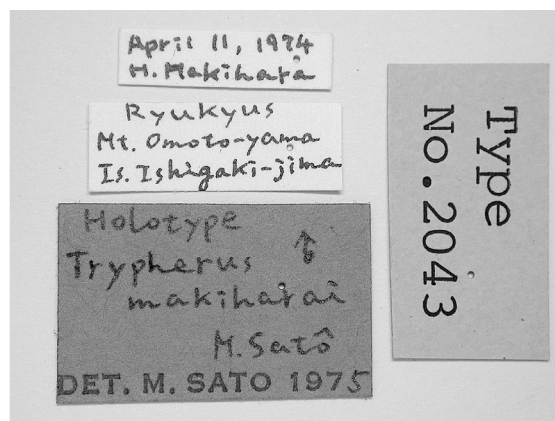 April 11, 1974
H. Makihara
Ryukyus
Mt. Omoto-yama
Is. Ishigaki-jima
Holotype ♂
Trypherus
makiharai
M. Satô
DET. M. SATO 1975
Type
No. 2043